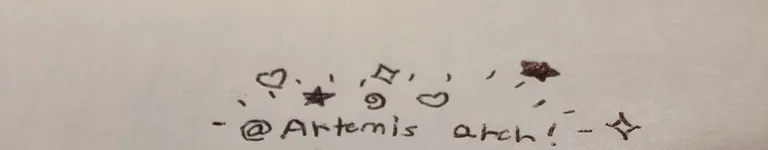 - @Artemis arch! -